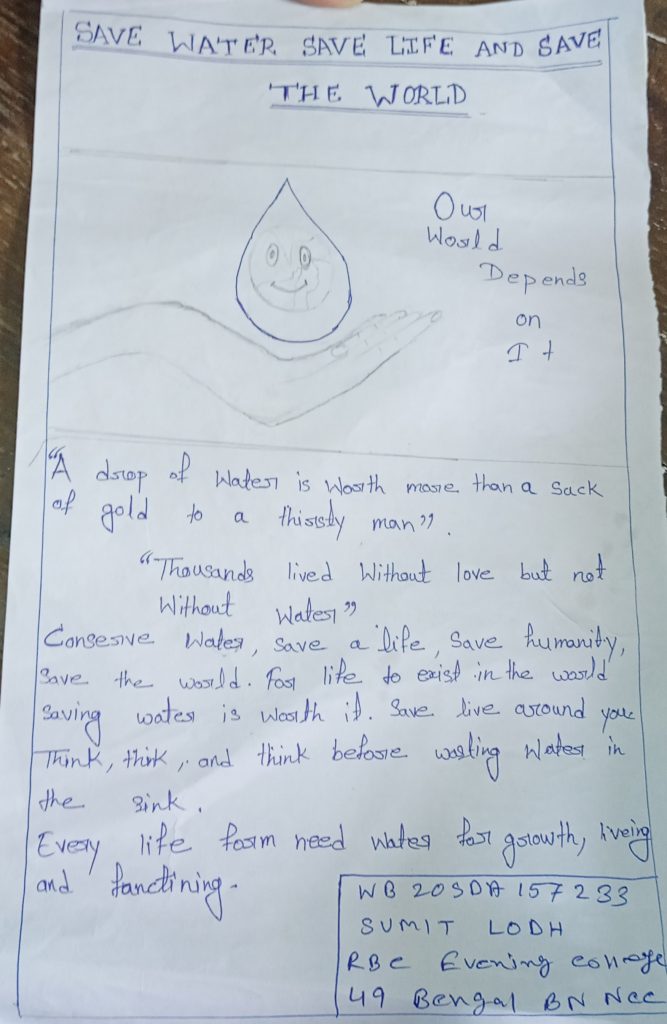 SAVE WATER SAVE LIFE AND SAVE
THE WORLD
Our
World
Depends
on
It
"A drop of Water is Worth more than a sack
of gold to a thirsty man".
"Thousands lived Without love but not
Without Water"
Conserve Water, save a life, Save humanity,
Save the world. For life to exist in the world
Saving water is Worth it. Save live around you
Think, think, and think before wasting Water in
the sink.
Every life form need water for growth, liveing
and functining.
WB20SDA157233
SUMIT LODH
RBC Evening college
49 Bengal BN Ncc